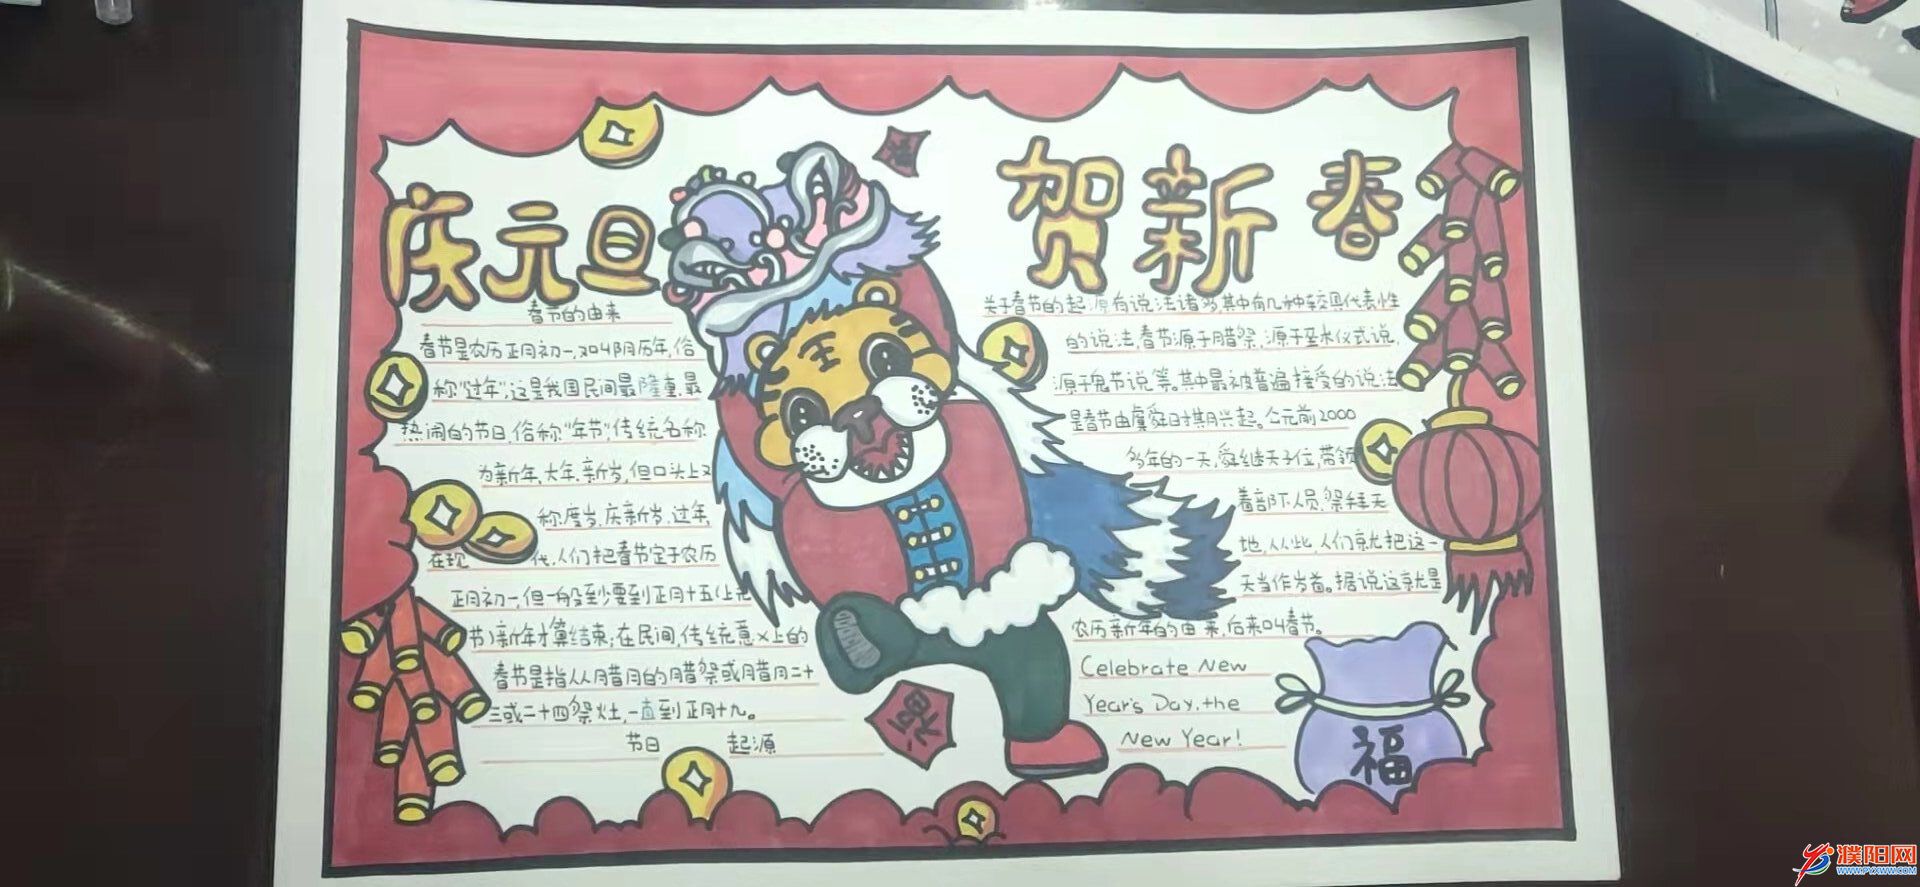 庆元旦
贺新春
春节的由来
春节是农历正月初一,又叫阴历年,俗
称"过年",这是我国民间最隆重、最
热闹的节日,俗称"年节",传统名称
为新年,大年,新岁,但口头上又
称度岁,庆新岁,过年,
在现代,人们把春节定于农历
正月初一,但一般至少要到正月十五(上元
节)新年才算结束;在民间,传统意义上的
春节是指从腊月的腊祭或腊月二十
三或二十四祭灶,一直到正月十九。
节日 起源
关于春节的起源有说法诸多,其中有几种较具代表性
的说法,春节源于腊祭,源于巫术仪式说,
源于鬼节说等。其中最被普遍接受的说法
是春节由虞舜时期兴起。公元前2000
多年的一天,舜继天子位,带领
着部下人员,祭拜天
地,从此,人们就把这一
天当作岁首。据说这就是
农历新年的由来,后来叫春节。
Celebrate New
Year's Day, the
New Year!
福
濮阳网
WWW.PYXWW.COM